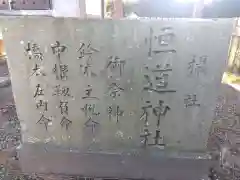 摂社
恒道神社
御祭神
鈴木主税命
中根靱負命
橋本左内命